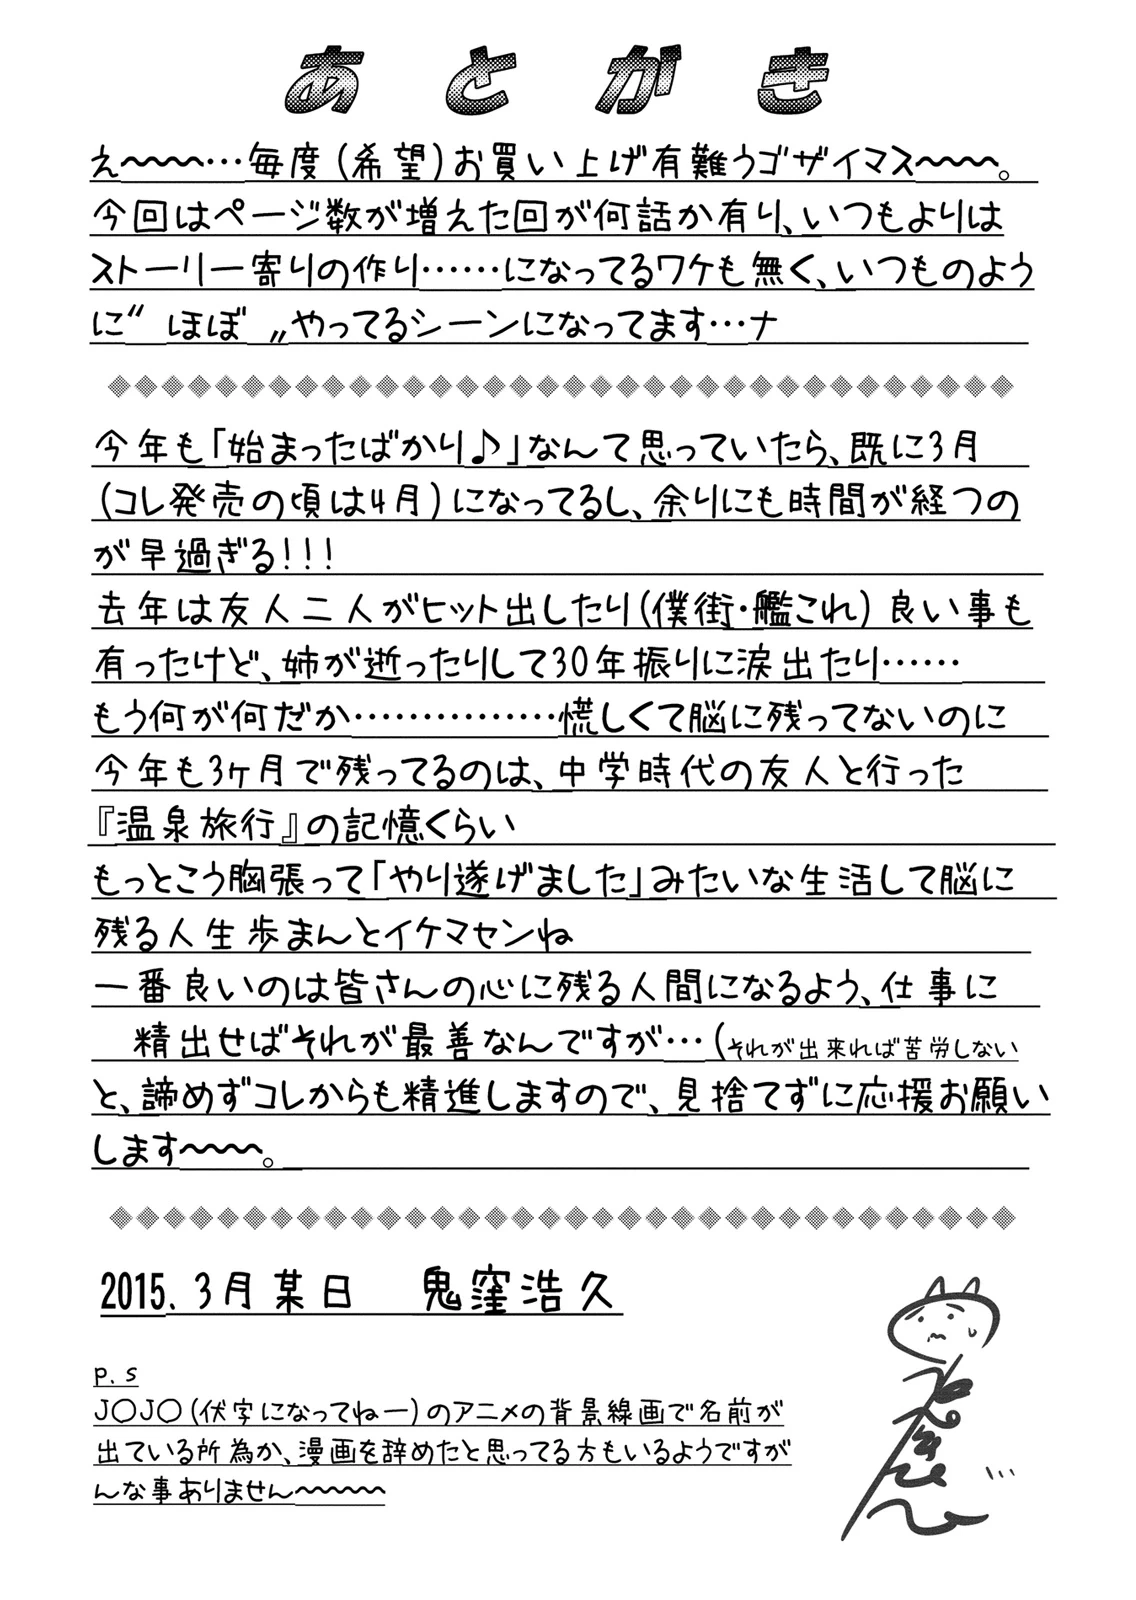 あとがき
え〜〜〜…毎度(希望)お買い上げ有難うゴザイマス〜〜〜。
今回はページ数が増えた回が何話か有り、いつもよりは
ストーリー寄りの作り……になってるワケも無く、いつものよう
に〝ほぼ〟やってるシーンになってます…ナ
今年も「始まったばかり♪」なんて思っていたら、既に3月
(コレ発売の頃は4月)になってるし、余りにも時間が経つの
が早過ぎる!!!
去年は友人二人がヒット出したり(僕街・艦これ)良い事も
有ったけど、姉が逝ったりして30年振りに涙出たり……
もう何が何だか……………慌しくて脳に残ってないのに
今年も3ヶ月で残ってるのは、中学時代の友人と行った
『温泉旅行』の記憶くらい
もっとこう胸張って「やり遂げました」みたいな生活して脳に
残る人生歩まんとイケマセンね
一番良いのは皆さんの心に残る人間になるよう、仕事に
精出せばそれが最善なんですが…(それが出来れば苦労しない
と、諦めずコレからも精進しますので、見捨てずに応援お願い
します〜〜〜。
2015.3月某日　鬼窪浩久
p.s
J○J○(伏字になってねー)のアニメの背景線画で名前が
出ている所為か、漫画を辞めたと思ってる方もいるようですが
んな事ありません〜〜〜〜